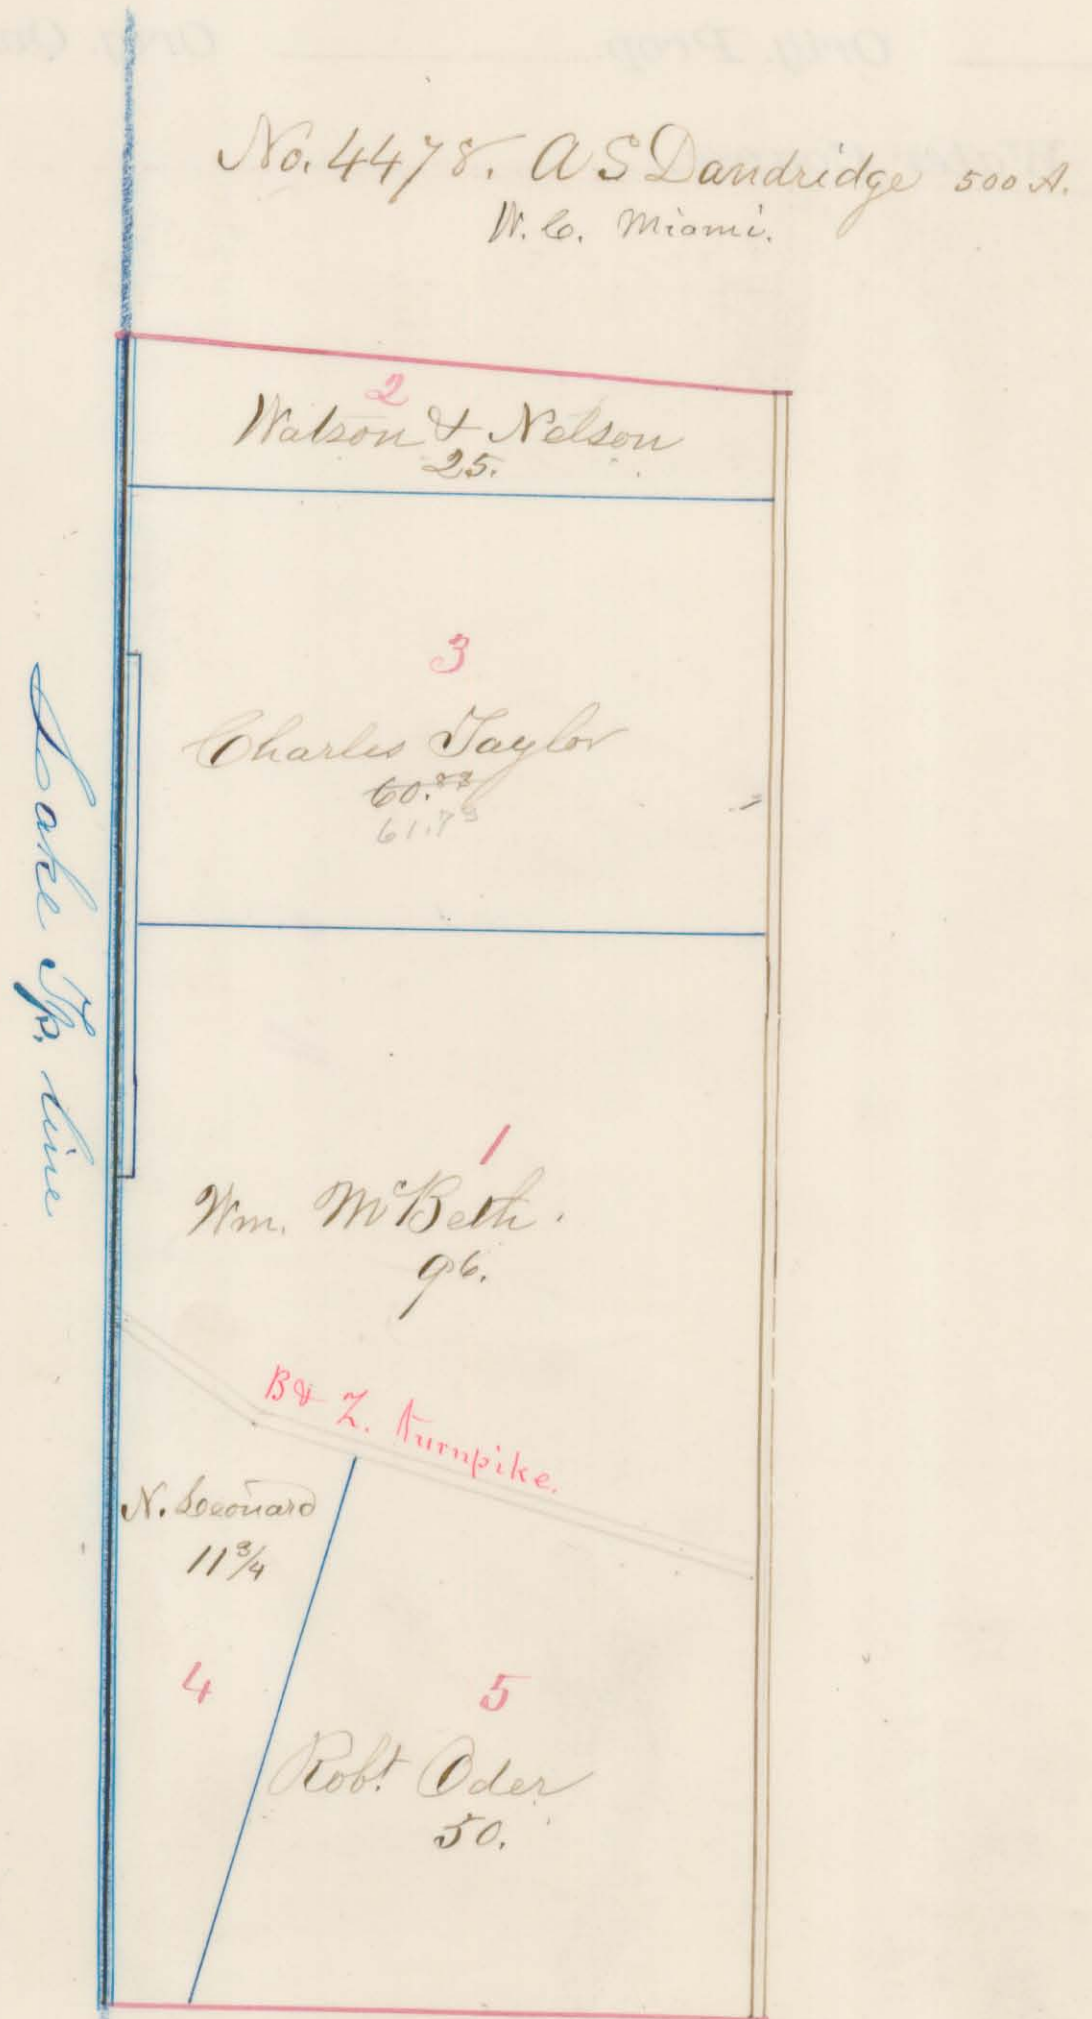 No. 4478. A S Dandridge 500 A.
W. C. Miami.
2
Watson & Nelson
25.
3
Charles Taylor
60.
61.73
Lake Tp. line
1
Wm. McBeth.
96.
B & Z. Turnpike.
N. Leonard
11 3/4
4
5
Robt Oder
50.